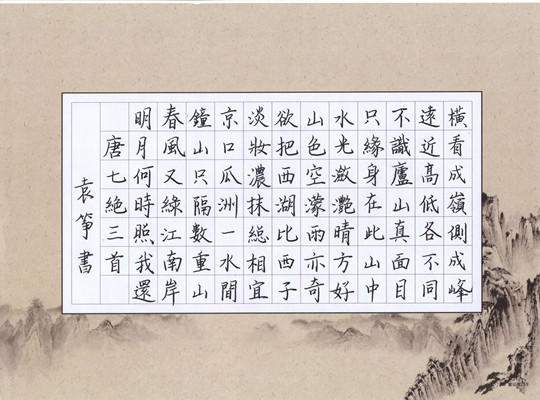 橫看成嶺側成峰
遠近高低各不同
不識廬山真面目
只緣身在此山中
水光瀲灩晴方好
山色空濛雨亦奇
欲把西湖比西子
淡妝濃抹總相宜
京口瓜洲一水間
鐘山只隔數重山
春風又綠江南岸
明月何時照我還
唐七絕三首
袁箏書